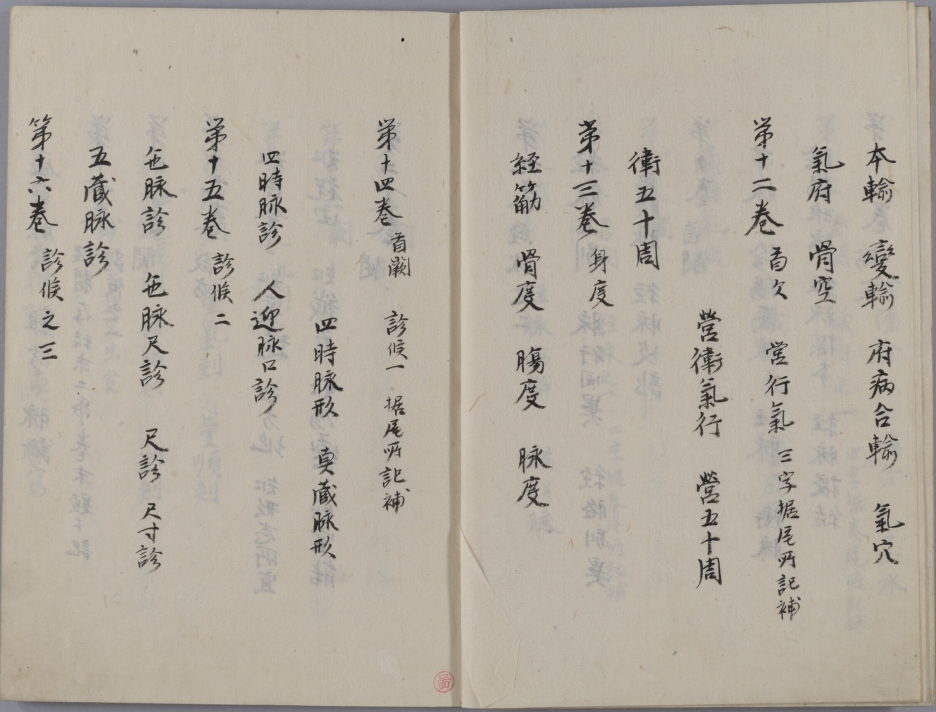 本輸 變輸 府病合輸 氣穴
氣府 骨空
第十二卷 首欠 営行氣 三字据尾所記補
営衛氣行 營五十周
衛五十周
第十三卷 身度
経筋 骨度 腸度 脉度
第十四卷 首闕 診候一 据尾所記補
四時脉形 真蔵脉形
四時脉診 人迎脉口診
第十五卷 診候二
色脉診 色脉尺診 尺診 尺寸診
五蔵脉診
第十六卷 診候之三